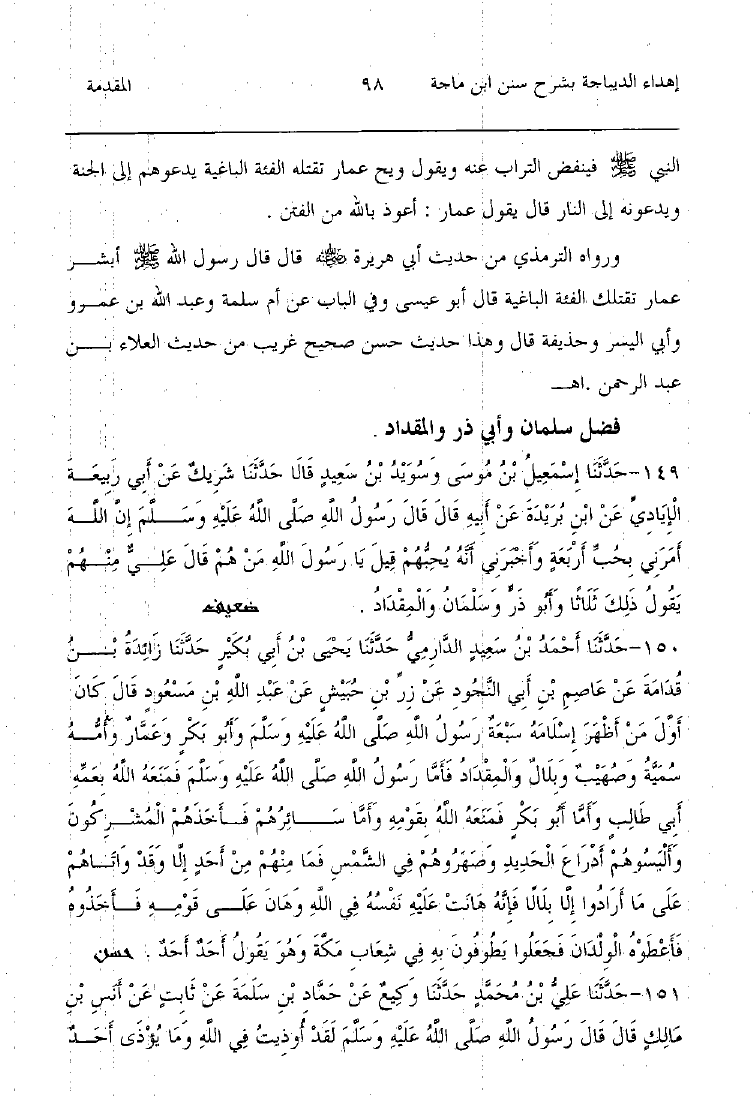 إهداء الديباجة بشرح سنن ابن ماجة ٩٨ المقدمة
النبي ﷺ فينفض التراب عنه ويقول ويح عمار تقتله الفئة الباغية يدعوهم إلى الجنة
ويدعونه إلى النار قال يقول عمار : أعوذ بالله من الفتن .
ورواه الترمذي من حديث أبي هريرة رضي الله عنه قال قال رسول الله ﷺ أبشـــر
عمار تقتلك الفئة الباغية قال أبو عيسى وفي الباب عن أم سلمة وعبد الله بن عمـرو
وأبي اليسر وحذيفة قال وهذا حديث حسن صحيح غريب من حديث العلاء بـــن
عبد الرحمن .اهـــ
فضل سلمان وأبي ذر والمقداد .
١٤٩-حَدَّثَنَا إِسْمَعِيلُ بْنُ مُوسَى وَسُوَيْدُ بْنُ سَعِيدٍ قَالَا حَدَّثَنَا شَرِيكٌ عَنْ أَبِي رَبِيعَـةَ
الْإِيَادِيِّ عَنْ ابْنِ بُرَيْدَةَ عَنْ أَبِيهِ قَالَ قَالَ رَسُولُ اللهِ صَلَّى اللَّهُ عَلَيْهِ وَسَـــلَّمَ إِنَّ اللَّهَ
أَمَرَنِي بِحُبِّ أَرْبَعَةٍ وَأَخْبَرَنِي أَنَّهُ يُحِبُّهُمْ قِيلَ يَا رَسُولَ اللهِ مَنْ هُمْ قَالَ عَلِـيٌّ مِنْـــهُمْ
يَقُولُ ذَلِكَ ثَلَاثًا وَأَبُو ذَرٍّ وَسَلْمَانُ وَالْمِقْدَادُ . ضعيف
١٥٠-حَدَّثَنَا أَحْمَدُ بْنُ سَعِيدٍ الدَّارِمِيُّ حَدَّثَنَا يَحْيَى بْنُ أَبِي بُكَيْرٍ حَدَّثَنَا زَائِدَةُ بْـــنُ
قُدَامَةَ عَنْ عَاصِمِ بْنِ أَبِي النَّجُودِ عَنْ زِرِّ بْنِ حُبَيْشٍ عَنْ عَبْدِ اللَّهِ بْنِ مَسْعُودٍ قَالَ كَانَ
أَوَّلَ مَنْ أَظْهَرَ إِسْلَامَهُ سَبْعَةٌ رَسُولُ اللهِ صَلَّى اللَّهُ عَلَيْهِ وَسَلَّمَ وَأَبُو بَكْرٍ وَعَمَّارٌ وَأُمُّـــهُ
سُمَيَّةُ وَصُهَيْبٌ وَبِلَالٌ وَالْمِقْدَادُ فَأَمَّا رَسُولُ اللهِ صَلَّى اللَّهُ عَلَيْهِ وَسَلَّمَ فَمَنَعَهُ اللَّهُ بِعَمِّهِ
أَبِي طَالِبٍ وَأَمَّا أَبُو بَكْرٍ فَمَنَعَهُ اللَّهُ بِقَوْمِهِ وَأَمَّا سَـــائِرُهُمْ فَـــأَخَذَهُمْ الْمُشْـرِكُونَ
وَأَلْبَسُوهُمْ أَدْرَاعَ الْحَدِيدِ وَصَهَرُوهُمْ فِي الشَّمْسِ فَمَا مِنْهُمْ مِنْ أَحَدٍ إِلَّا وَقَدْ وَاتَـاهُمْ
عَلَى مَا أَرَادُوا إِلَّا بِلَالًا فَإِنَّهُ هَانَتْ عَلَيْهِ نَفْسُهُ فِي اللَّهِ وَهَانَ عَلَـــى قَوْمِـــهِ فَـأَخَذُوهُ
فَأَعْطَوْهُ الْوِلْدَانَ فَجَعَلُوا يَطُوفُونَ بِهِ فِي شِعَابِ مَكَّةَ وَهُوَ يَقُولُ أَحَدٌ أَحَدٌ . حسن
١٥١-حَدَّثَنَا عَلِيُّ بْنُ مُحَمَّدٍ حَدَّثَنَا وَكِيعٌ عَنْ حَمَّادِ بْنِ سَلَمَةَ عَنْ ثَابِتٍ عَنْ أَنَسِ بْنِ
مَالِكٍ قَالَ قَالَ رَسُولُ اللهِ صَلَّى اللَّهُ عَلَيْهِ وَسَلَّمَ لَقَدْ أُوذِيتُ فِي اللَّهِ وَمَا يُؤْذَى أَحَـــدٌ